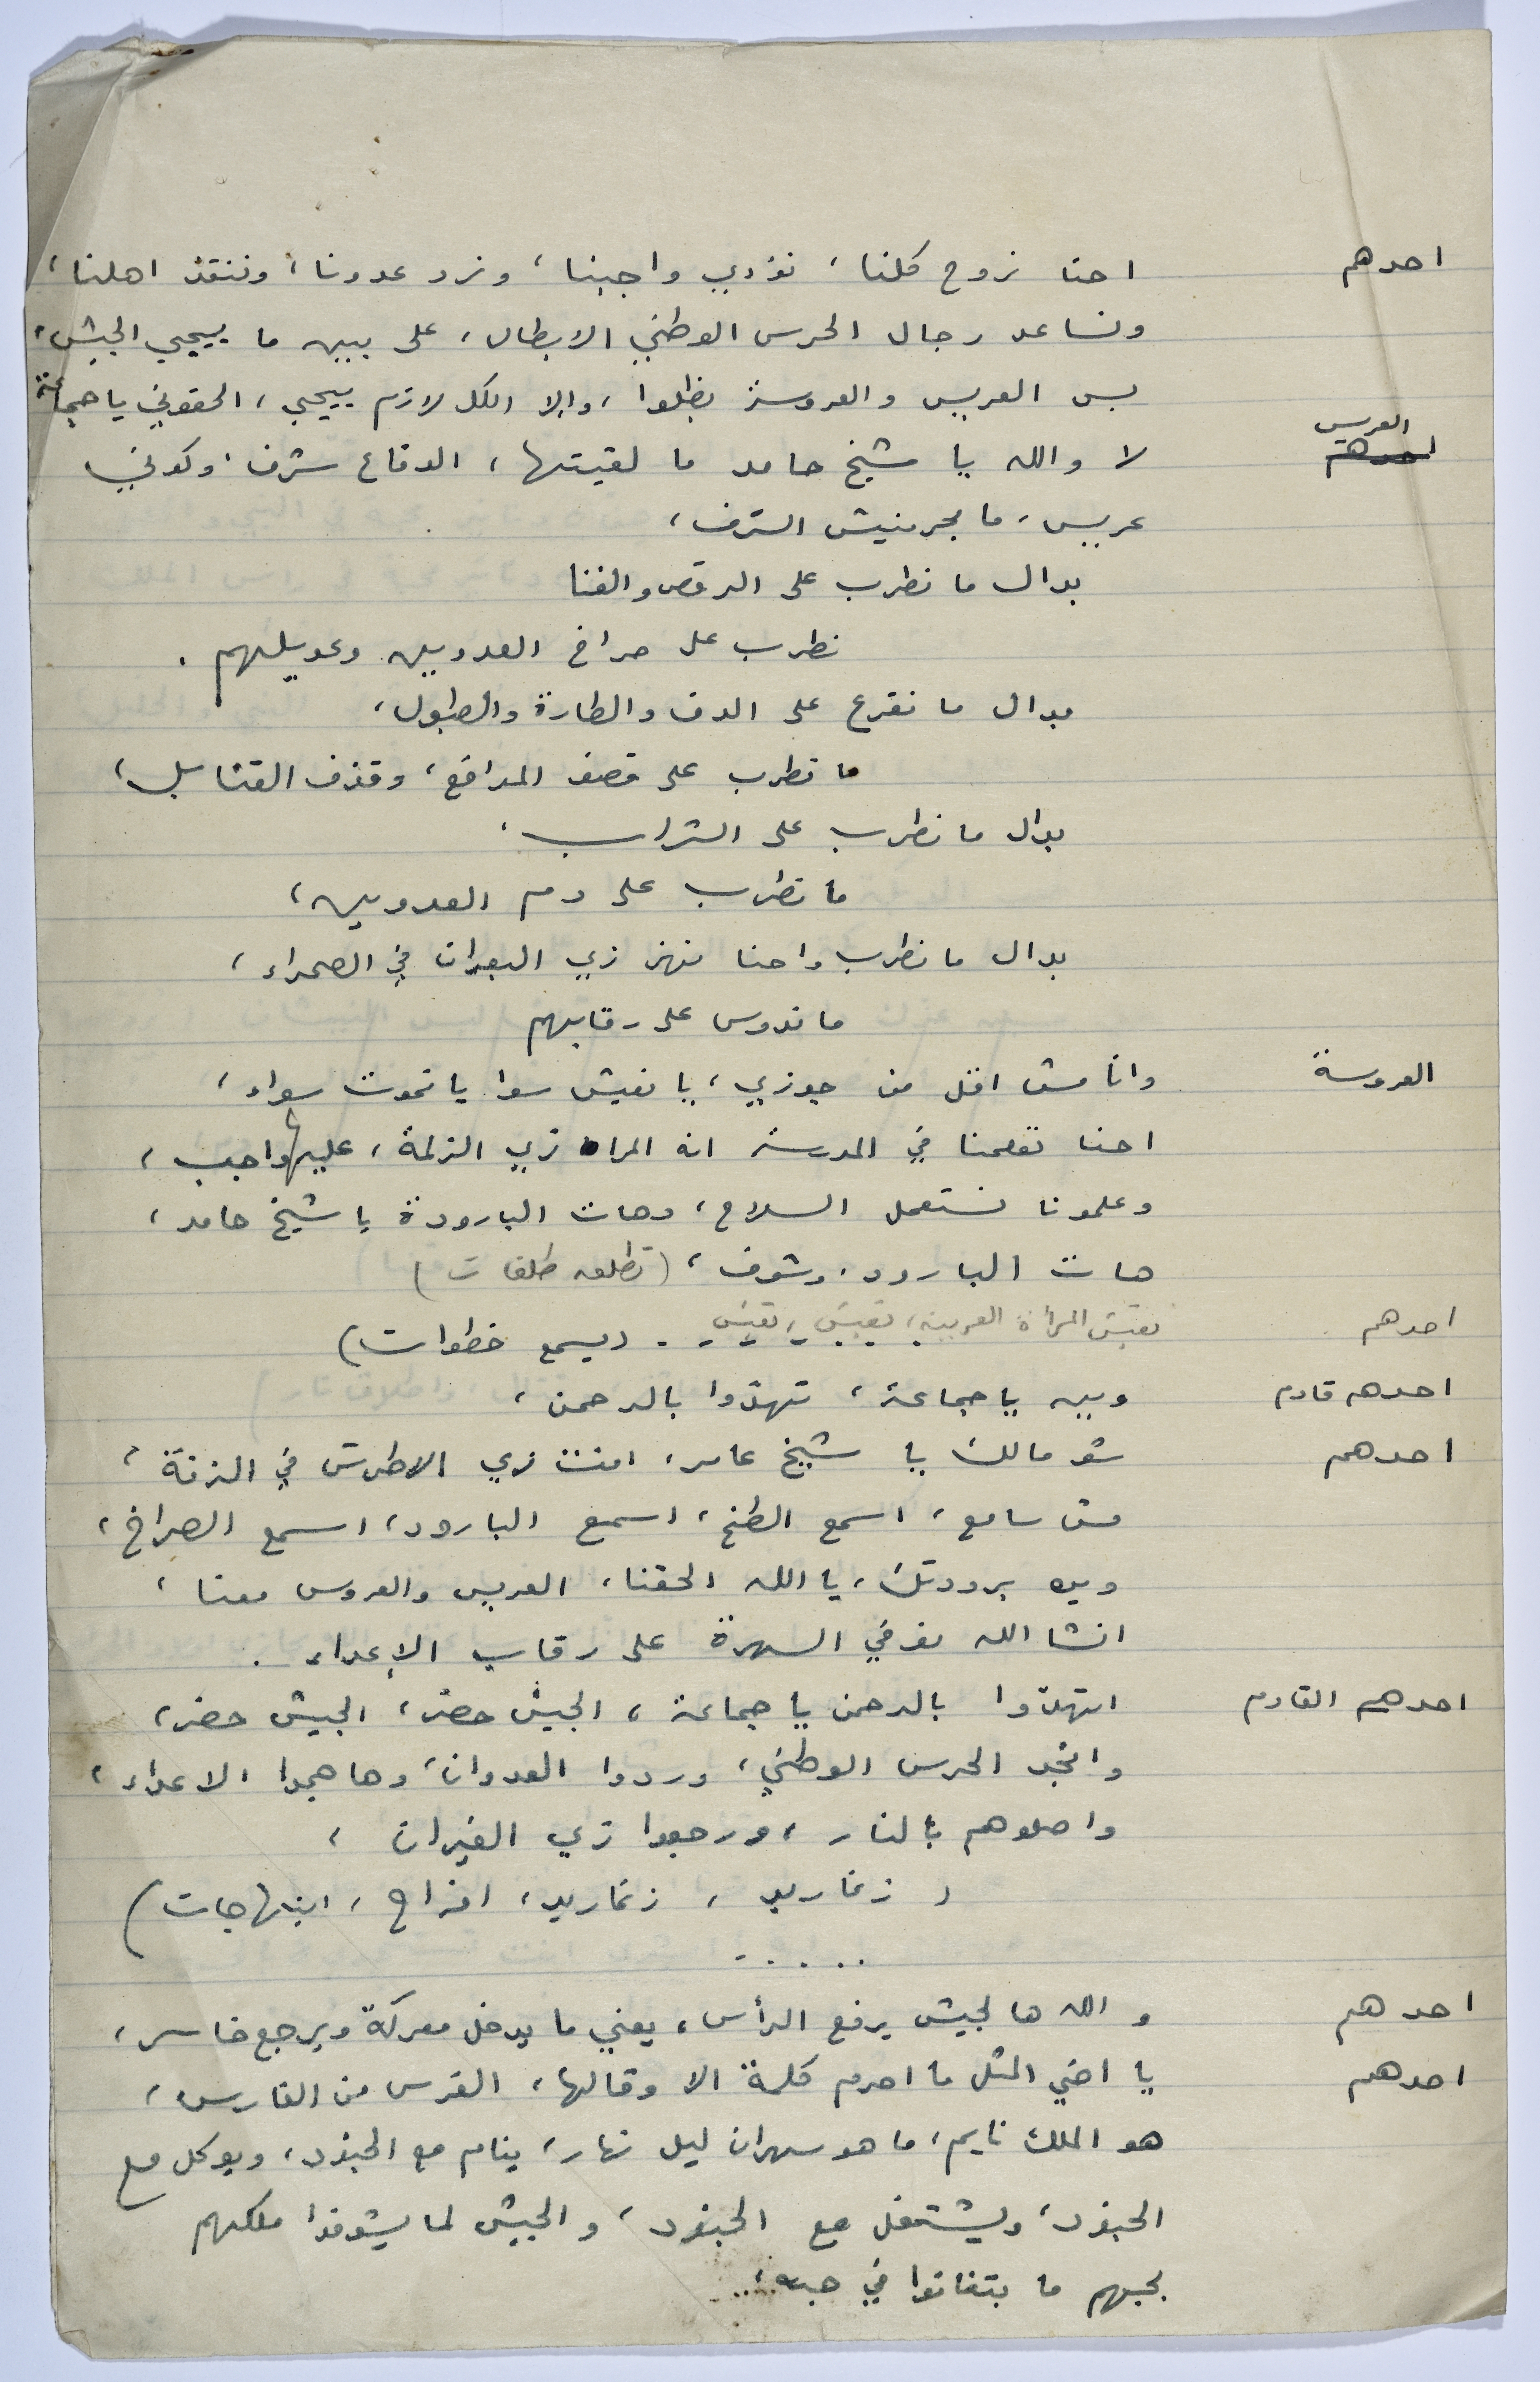 احدهم احنا نروح كلنا، نؤدي واجبنا، ونرد عدونا، وننقذ اهلنا،
ونساعد رجال الحرس الوطني الابطال، على بين ما ييجي الجيش،
بس العريس والعروسة بظلوا، والا الكل لازم ييجي، الحقوني يا جماعة
العريس لا والله يا شيخ حامد ما لقيتها، الدفاع شرف، وكوني
عريس، ما بحرمنيش الشرف،
بدال ما نطرب على الرقص والغنا
نطرب على صراخ العدويين وعويلهم.
بدال ما نقرع على الدف والطارة والطبول،
ما نطرب على قصف المدافع، وقذف القنابل،
بدال ما نطرب على الشراب،
ما نطرب على دم العدويين،
بدال ما نطرب واحنا نهز زي البعران في الصحراء،
ما ندوس على رقابهم
العروسة وانا مش اقل من جوزي، يا نعيش سوا يا نموت سواء،
احنا تعلمنا في المدرسة انه المراه زي الزلمة، عليها واجب،
وعلمونا نستعمل السلاح، وهات البارودة يا شيخ حامد،
هات البارود، وشوف، (تطلق طلقات)
احدهم تعيش المرأة العربية، تعيش، تعيش. (يسمع خطوات)
احدهم قادم وين يا جماعة، تهدّوا بالرحمن،
احدهم شو مالك يا شيخ عامر، انت زي الاطرش في الزفة،
مش سامع، اسمع الطخ، اسمع البارود، اسمع الصراخ،
وين برودتك، يا الله الحقنا، العريس والعروس معنا،
انشا الله نوفي السهرة على رقاب الإعداء.
احدهم القادم اتهدّوا بالرحمن يا جماعة، الجيش حضر، الجيش حضر،
وانجد الحرس الوطني، وردوا العدوان، وهاجموا الاعداء،
واصلوهم بالنار، ورجعوا زي الفيران،
( زغاريد، زغاريد، افراح، ابتهاجات)
.....
احدهم والله هالجيش يرفع الرأس، يعني ما يدخل معركة ويرجع خاسر،
احدهم يا اخي المثل ما احرم كلمة الا وقالها، الفرس من الفارس،
هو الملك نايم، ما هو سهران ليل نهار، ينام مع الجنود، ويوكل مع
الجنود، ويشتغل مع الجنود، والجيش لما يشوفوا ملكهم
بحبهم ما بتفانوا في حبه،....